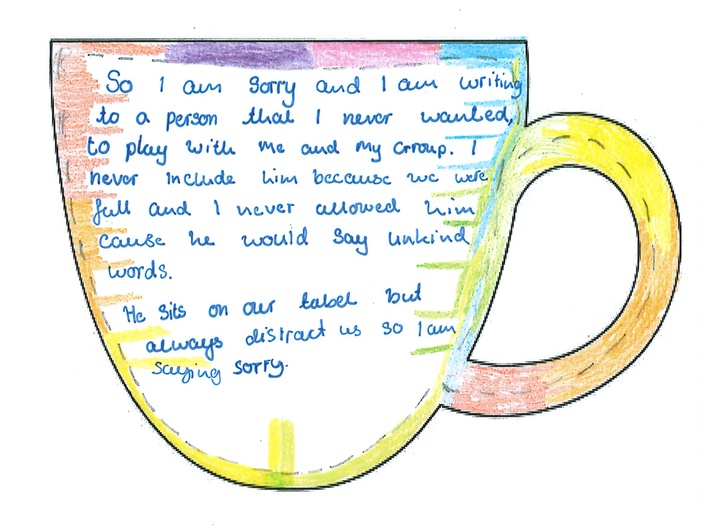 So I am sorry and I am writing
to a person that I never wanted,
to play with me and my Group. I
never include him because we were
full and I never allowed him
cause he would say unkind
words.
He sits on our tabel but
always distract us so I am
saying sorry.